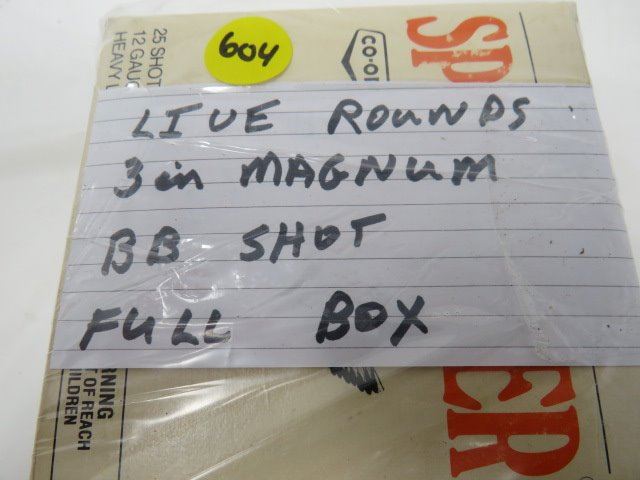 604
LIVE ROUNDS
3 in MAGNUM
BB SHOT
FULL BOX
25 SHOT
12 GAUG
HEAVY
CO-OP
SP
ER
RNING
T OF REACH
ILDREN